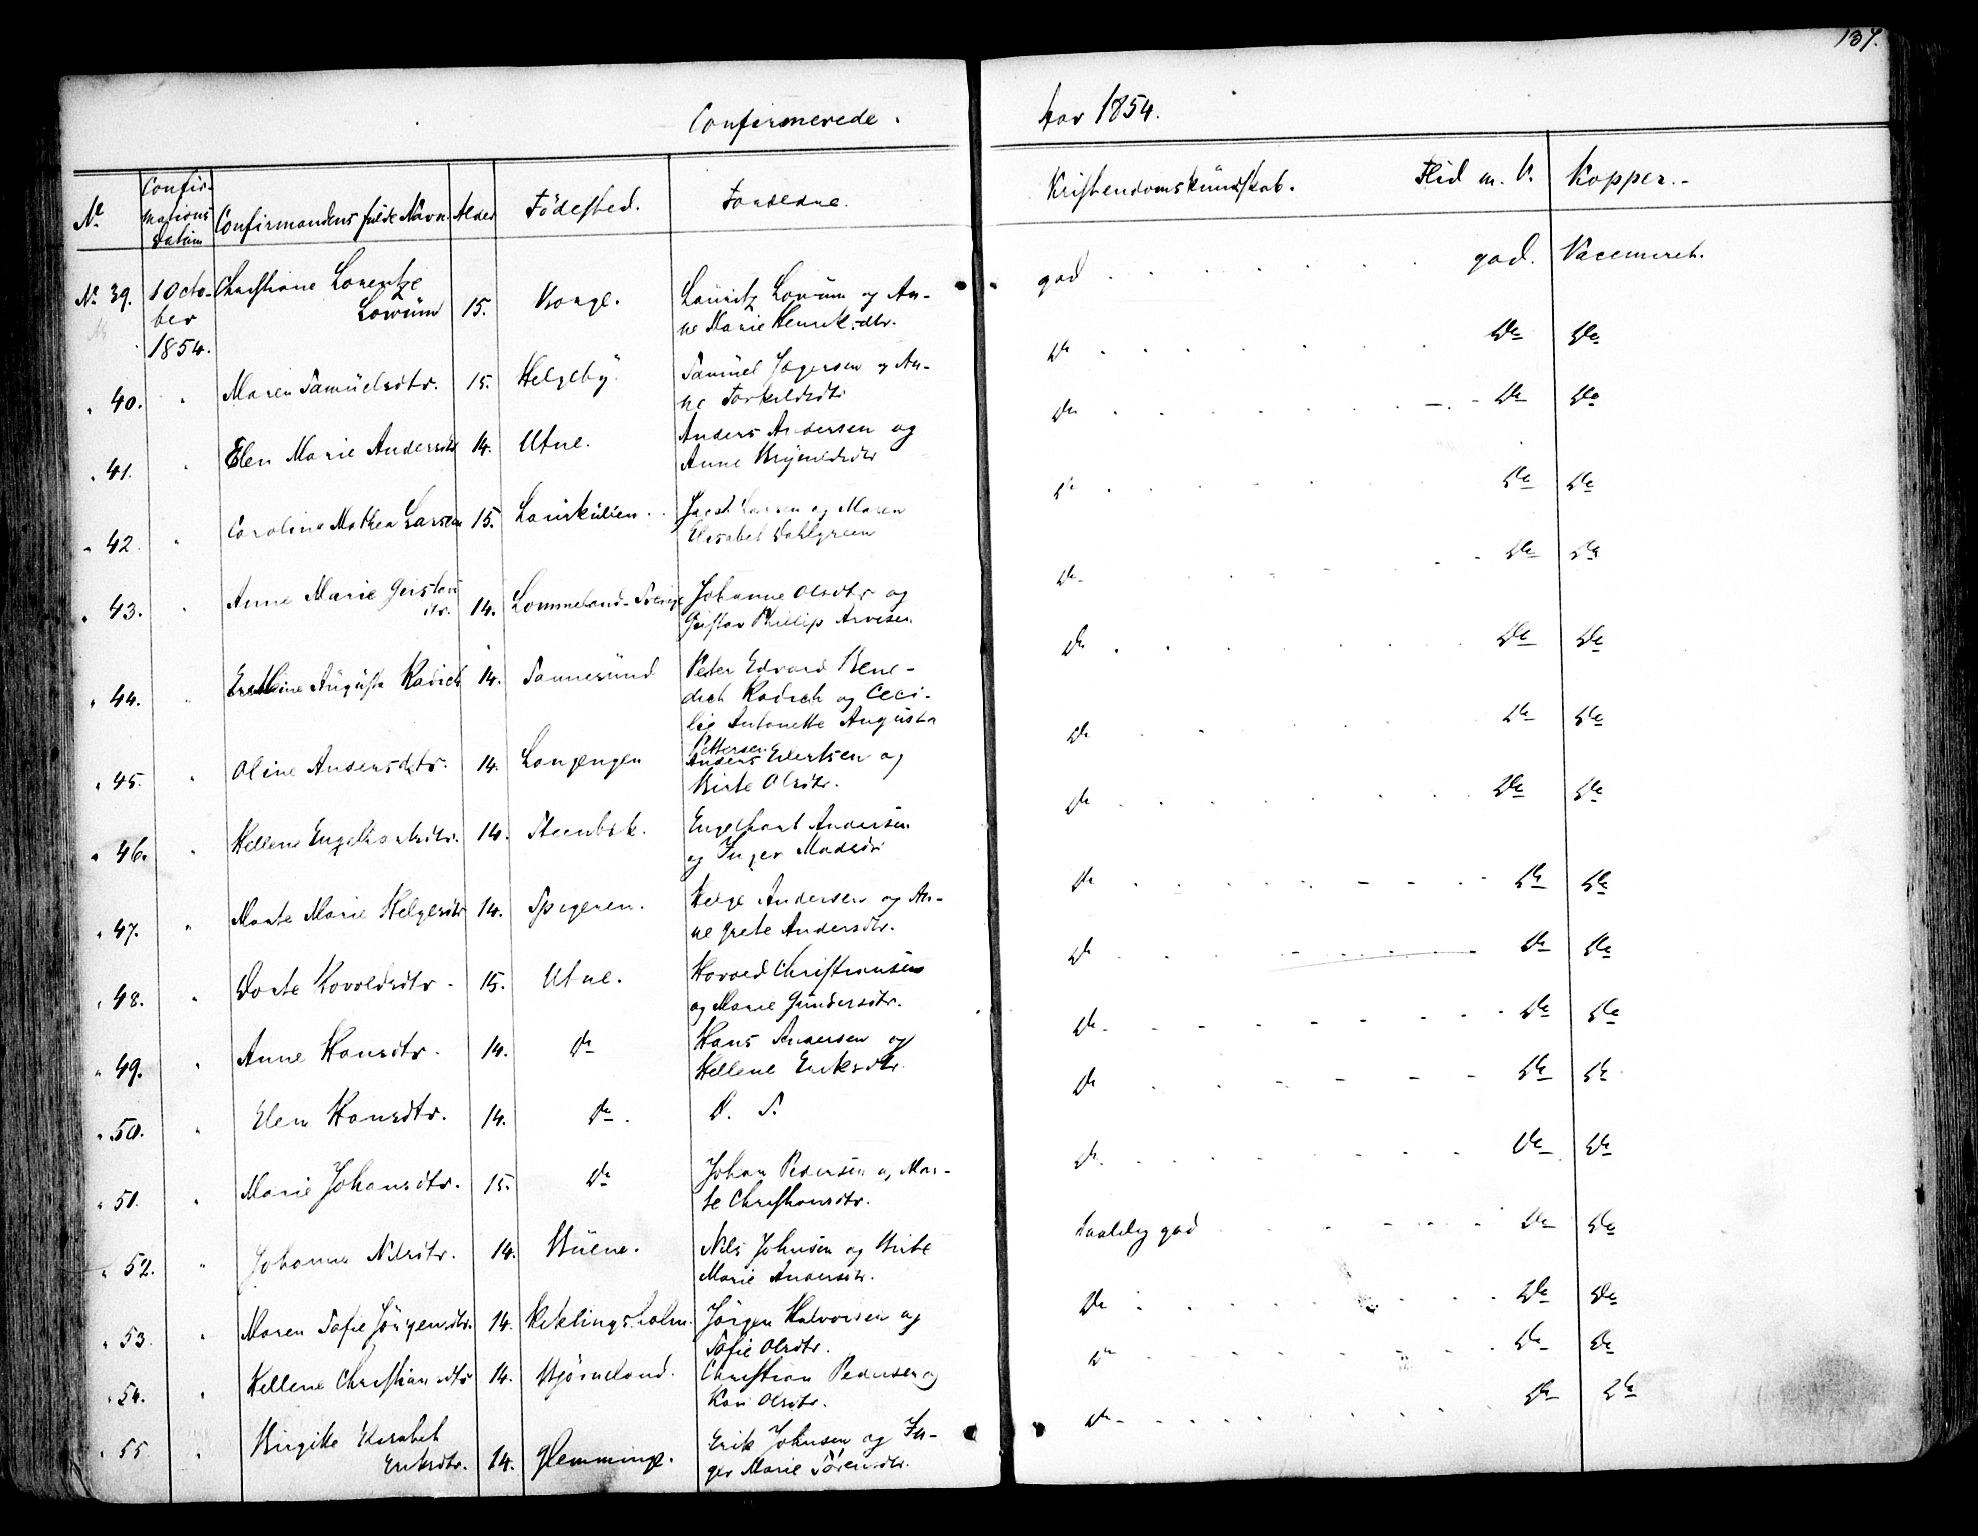 137.
Confirmerede.
Aar 1854.
No
Confir-
mations
Datum
Confirmandens fulde Navn
Alder
Födested.
Forældre.
Kristendomskundskab.
Flid m. V.
Kopper.-
No 39.
1 Octo-
ber
1854.
Christiane Lorentze
Lorüm
15.
Borge.
Lauritz Lorüm og An-
ne Marie Henriksdtr.
god
god.
Vaccineret.
" 40.
"
Maren Samüelsdtr.
15.
Helgeby.
Samüel Jægersen og An-
ne Torkeldsdtr
Do
Do
Do
" 41.
"
Elen Marie Andersdtr
14.
Utne.
Anders Andersen og
Anne Brynildsdtr
Do
Do
Do
" 42
"
Caroline Mathea Larsen
15.
Laurkullen.
Jacob Larsen og Maren
Elisabet Dahlgreen
Do
Do
Do
" 43.
"
Anne Marie Gustavs
dtr.
14.
Lommeland - Sverige
Johanne Olsdtr og
Gustav Phillip Arvesen
Do
Do
Do
" 44.
"
Augusta Radich
14.
Sannesünd
Peter Edvard Bene-
dict Radich og Ceci-
lie Antonette Augusta
Pettersen
Do
Do
Do
" 45.
"
Oline Andersdtr.
14.
Langengen
Anders Evertsen og
Birte Olsdtr.
Do
Do
Do
" 46.
"
Hellene Engelhartsdtr.
14.
Steenbek.
Engelhart Andersen
og Inger Madsdtr
Do
Do
Do
" 47.
"
Marte Marie Helgesdtr
14.
Spigeren.
Helge Andersen og An-
ne Grete Andersdtr.
Do
Do
Do
" 48.
"
Dorte Hovoldsdtr
15.
Utne.
Hovoed Christiansen
og Marie Gündersdtr.
Do
Do
Do
" 49.
"
Anne Hansdtr.
14.
Do
Hans Andersen og
Hellene Eriksdtr.
Do
Do
Do
" 50.
"
Elen Hansdtr.
14.
Do.
D. S.
Do
Do
Do
" 51.
"
Marie Johansdtr.
15.
Do
Johan Pedersen og Mar-
te Christiansdtr.
Do.
Do
Do
" 52.
"
Johanne Nilsdtr.
14.
Büene.
Nils Johnsen og Birte
Marie Andersdtr.
taalelig god
Do
Do
" 53.
"
Maren Sofie Jörgensdtr.
14.
Keklingsholm.
Jörgen Halvorsen og
Sofie Olsdtr.
Do
Do
Do
" 54.
"
Hellene Christiansdtr
14.
Bjørneland.
Christian Pedersen og
Kari Olsdtr.
Do
Do
Do
" 55
"
Birgitte Elisabet
Eriksdtr.
14.
Glemminge.
Erik Johnsen og In-
ger Marie Sörensdtr.
Do
Do
Do